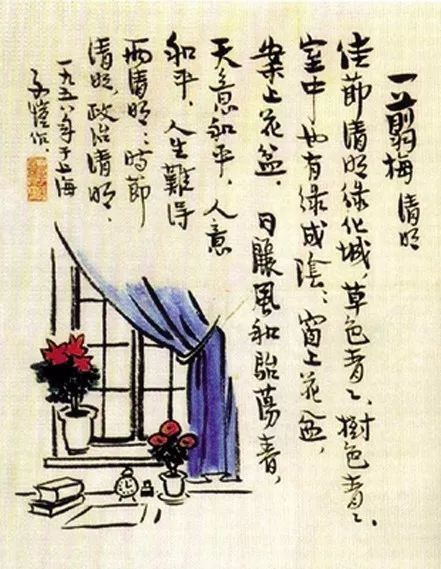 一翦梅 清明
佳節清明綠化城,草色青々,樹色青々,
室中也有綠成陰:窗上花盆,
案上花盆。日麗風和駘蕩春,
天意和平,人意
和平。人生難得
兩清明:時節
清明,政治清明。
一九五八年于上海
子愷作